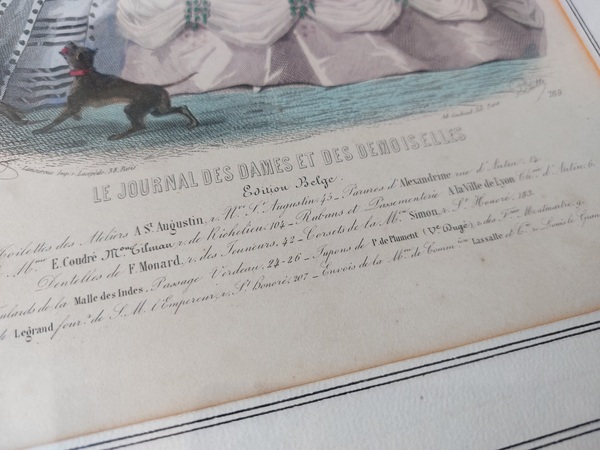 Imp. r. Lacépède, 38, Paris
789
LE JOURNAL DES DAMES ET DES DEMOISELLES
Edition Belge.
Toilettes des Ateliers A St. Augustin, r. Nve. St. Augustin, 45 _ Parures d'Alexandrine rue d'Antin, 14.
Mme. E. Coudré Mon Tilman, r. de Richelieu, 104 _ Rubans et Passementerie A la Ville de Lyon Ch.ée d'Antin, 6.
Dentelles de F. Monard, r. des Jeuneurs, 42 _ Corsets de la Mon. Simon, r. St. Honoré, 183.
Foulards de la Malle des Indes, Passage Verdeau, 24-26 _ Jupons de P. de Plument (Ve. Bugé) r. des Fmes Montmartre
Legrand four.r de S. M. l'Empereur, r. St. Honoré, 207 _ Envois de la Mon. de Comm.on Lassalle et Cie. r. Louis le Grand